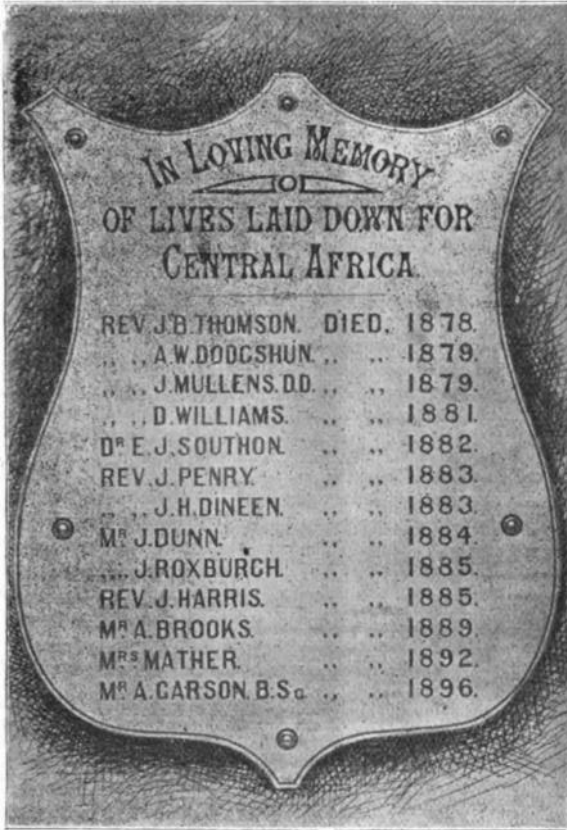 IN LOVING MEMORY
OF LIVES LAID DOWN FOR
CENTRAL AFRICA.
REV. J.B. THOMSON. DIED, 1878.
,, ,, A.W. DODGSHUN. ,, ,, 1879.
,, ,, J. MULLENS. D.D. ,, ,, 1879.
,, ,, D. WILLIAMS. ,, ,, 1881.
DR E.J. SOUTHON. ,, ,, 1882.
REV. J. PENRY. ,, ,, 1883.
,, ,, J.H. DINEEN. ,, ,, 1883.
MR J. DUNN. ,, ,, 1884.
,, ,, J. ROXBURGH. ,, ,, 1885.
REV. J. HARRIS. ,, ,, 1885.
MR A. BROOKS. ,, ,, 1889.
MRS MATHER. ,, ,, 1892.
MR A. CARSON. B.Sc. ,, ,, 1896.